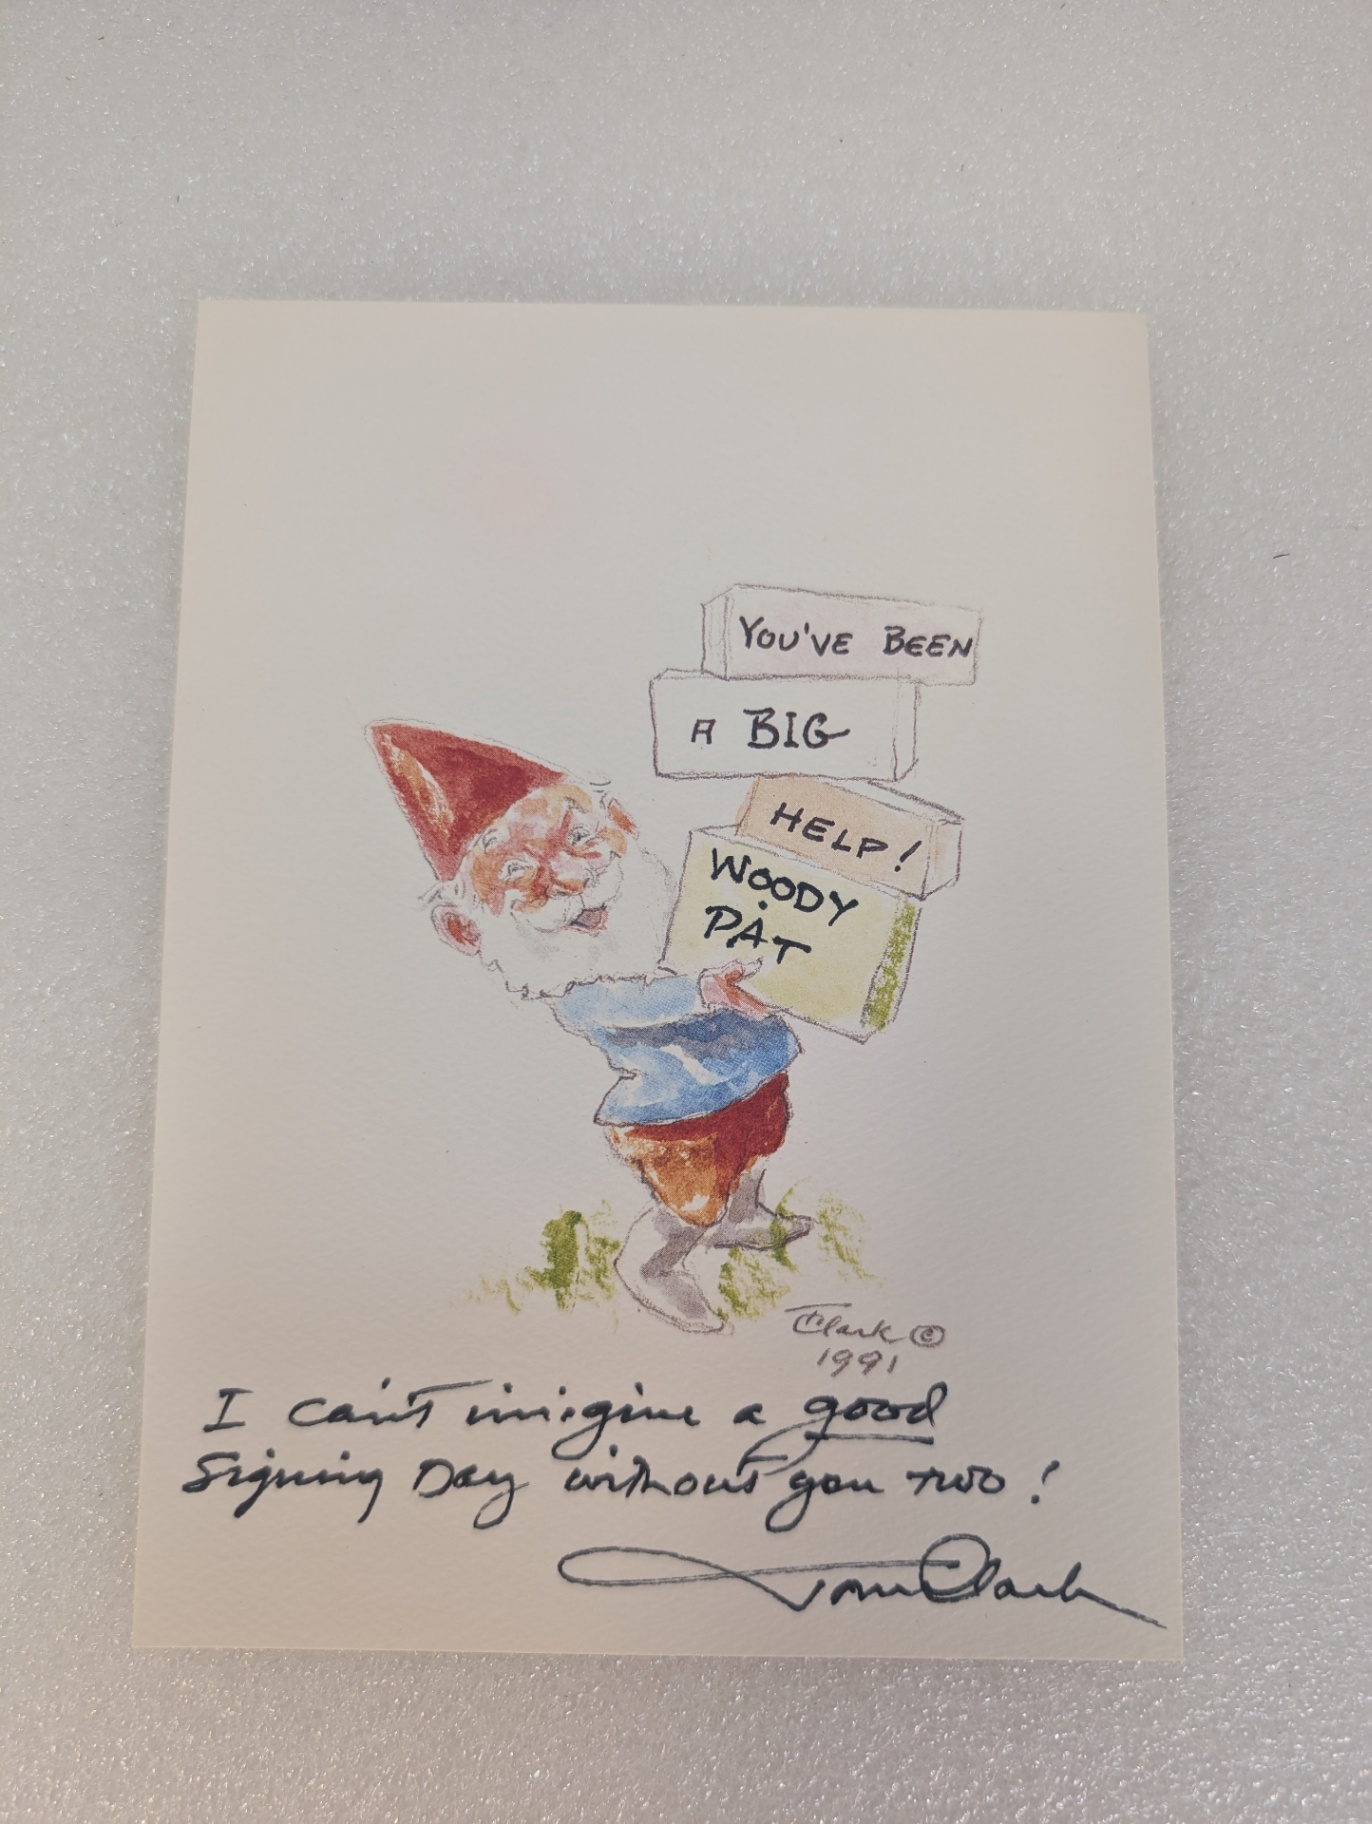 YOU'VE BEEN
A BIG
HELP!
WOODY
PAT
TClark ©
1991
I can't imagine a good
Signing Day without you two!
Tom Clark